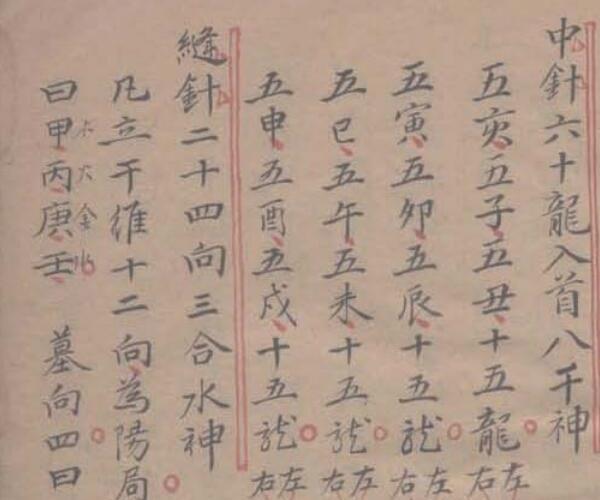 中針六十龍入首八千神
五亥五子五丑十五龍左右
五寅五卯五辰十五龍左右
五巳五午五未十五龍左右
五申五酉五戌十五龍左右
縫針二十四向三合水神
凡立干維十二向為陽局
曰甲木丙火庚金壬水 墓向四曰